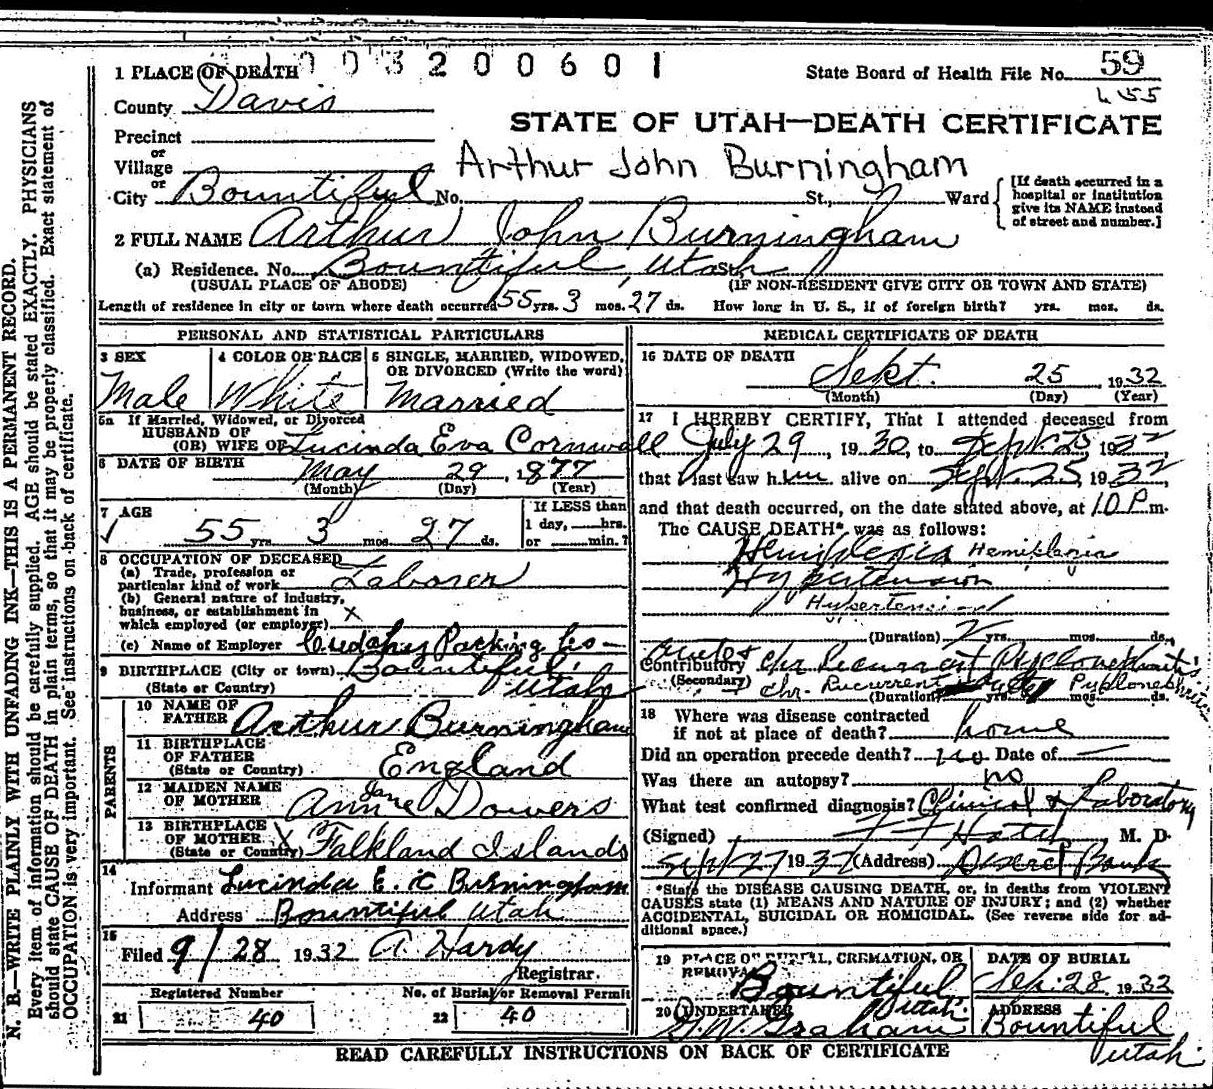 1003200601
1 PLACE OF DEATH
State Board of Health File No. 59
County Davis
STATE OF UTAH—DEATH CERTIFICATE
Precinct
or
Village
Arthur John Burningham
or
City Bountiful No. St., Ward
[If death occurred in a hospital or institution give its NAME instead of street and number.]
2 FULL NAME Arthur John Burningham
(a) Residence. No. Bountiful, Utah St.
(USUAL PLACE OF ABODE) (IF NON-RESIDENT GIVE CITY OR TOWN AND STATE)
Length of residence in city or town where death occurred 55 yrs. 3 mos. 27 ds. How long in U. S., if of foreign birth? yrs. mos. ds.
PERSONAL AND STATISTICAL PARTICULARS
3 SEX Male
4 COLOR OR RACE White
5 SINGLE, MARRIED, WIDOWED, OR DIVORCED (Write the word) Married
5a If Married, Widowed, or Divorced
HUSBAND OF
(OR) WIFE OF Lucinda Eva Cornwall
6 DATE OF BIRTH May 29, 1877
(Month) (Day) (Year)
7 AGE 55 yrs. 3 mos. 27 ds.
If LESS than 1 day, hrs. or min.?
8 OCCUPATION OF DECEASED
(a) Trade, profession or particular kind of work Laborer
(b) General nature of industry, business, or establishment in which employed (or employer) X
(c) Name of Employer Cudahy Packing Co
9 BIRTHPLACE (City or town) Bountiful
(State or Country) Utah
PARENTS
10 NAME OF FATHER Arthur Burningham
11 BIRTHPLACE OF FATHER (State or Country) England
12 MAIDEN NAME OF MOTHER Anne Jane Dowers
13 BIRTHPLACE OF MOTHER (State or Country) X Falkland Islands
14
Informant Lucinda E. C Burningham
Address Bountiful Utah
15
Filed 9/28 1932 A Hardy
Registrar.
Registered Number No. of Burial or Removal Permit
21 40 22 40
MEDICAL CERTIFICATE OF DEATH
16 DATE OF DEATH
Sept. 25, 1932
(Month) (Day) (Year)
17 I HEREBY CERTIFY, That I attended deceased from
July 29, 1930, to Sept. 25, 1932
that I last saw him alive on Sept. 25, 1932,
and that death occurred, on the date stated above, at 10 P.m.
The CAUSE DEATH* was as follows:
Hemiplegia Hemiplegia
Hypertension
Hypertension
(Duration) 2 yrs. mos. ds.
Contributory Chr Recurrent Pyelonephritis
(Secondary) Chr. Recurrent Pyelonephritis
(Duration) yrs. mos. ds.
18 Where was disease contracted
if not at place of death? home
Did an operation precede death? no Date of —
Was there an autopsy? no
What test confirmed diagnosis? Clinical & Laboratory
(Signed) Hatch M. D.
Sept 27 1932 (Address) Deseret Bank
*State the DISEASE CAUSING DEATH, or, in deaths from VIOLENT
CAUSES state (1) MEANS AND NATURE OF INJURY; and (2) whether
ACCIDENTAL, SUICIDAL OR HOMICIDAL. (See reverse side for additional space.)
19 PLACE OF BURIAL, CREMATION, OR REMOVAL Bountiful Utah
DATE OF BURIAL Sep. 28, 1932
20 UNDERTAKER G. W. Graham
ADDRESS Bountiful Utah
READ CAREFULLY INSTRUCTIONS ON BACK OF CERTIFICATE
N. B.—WRITE PLAINLY WITH UNFADING INK—THIS IS A PERMANENT RECORD.
Every item of information should be carefully supplied. AGE should be stated EXACTLY. PHYSICIANS
should state CAUSE OF DEATH in plain terms, so that it may be properly classified. Exact statement of
OCCUPATION is very important. See instructions on back of certificate.